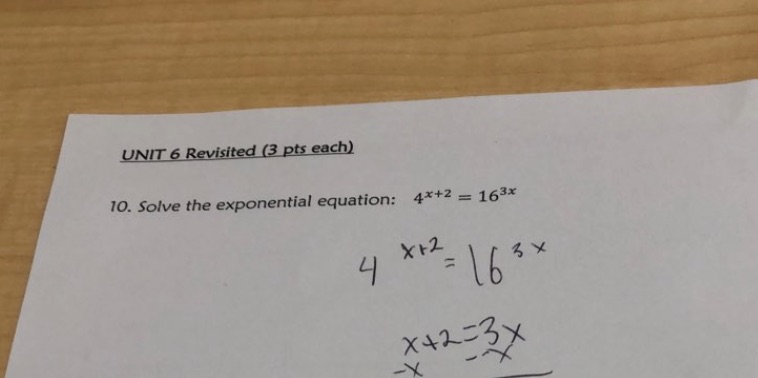 UNIT 6 Revisited (3 pts each)
10. Solve the exponential equation: 4^{x+2} = 16^{3x}
4^{x+2} = 16^{3x}
x+2=3x
-x -x